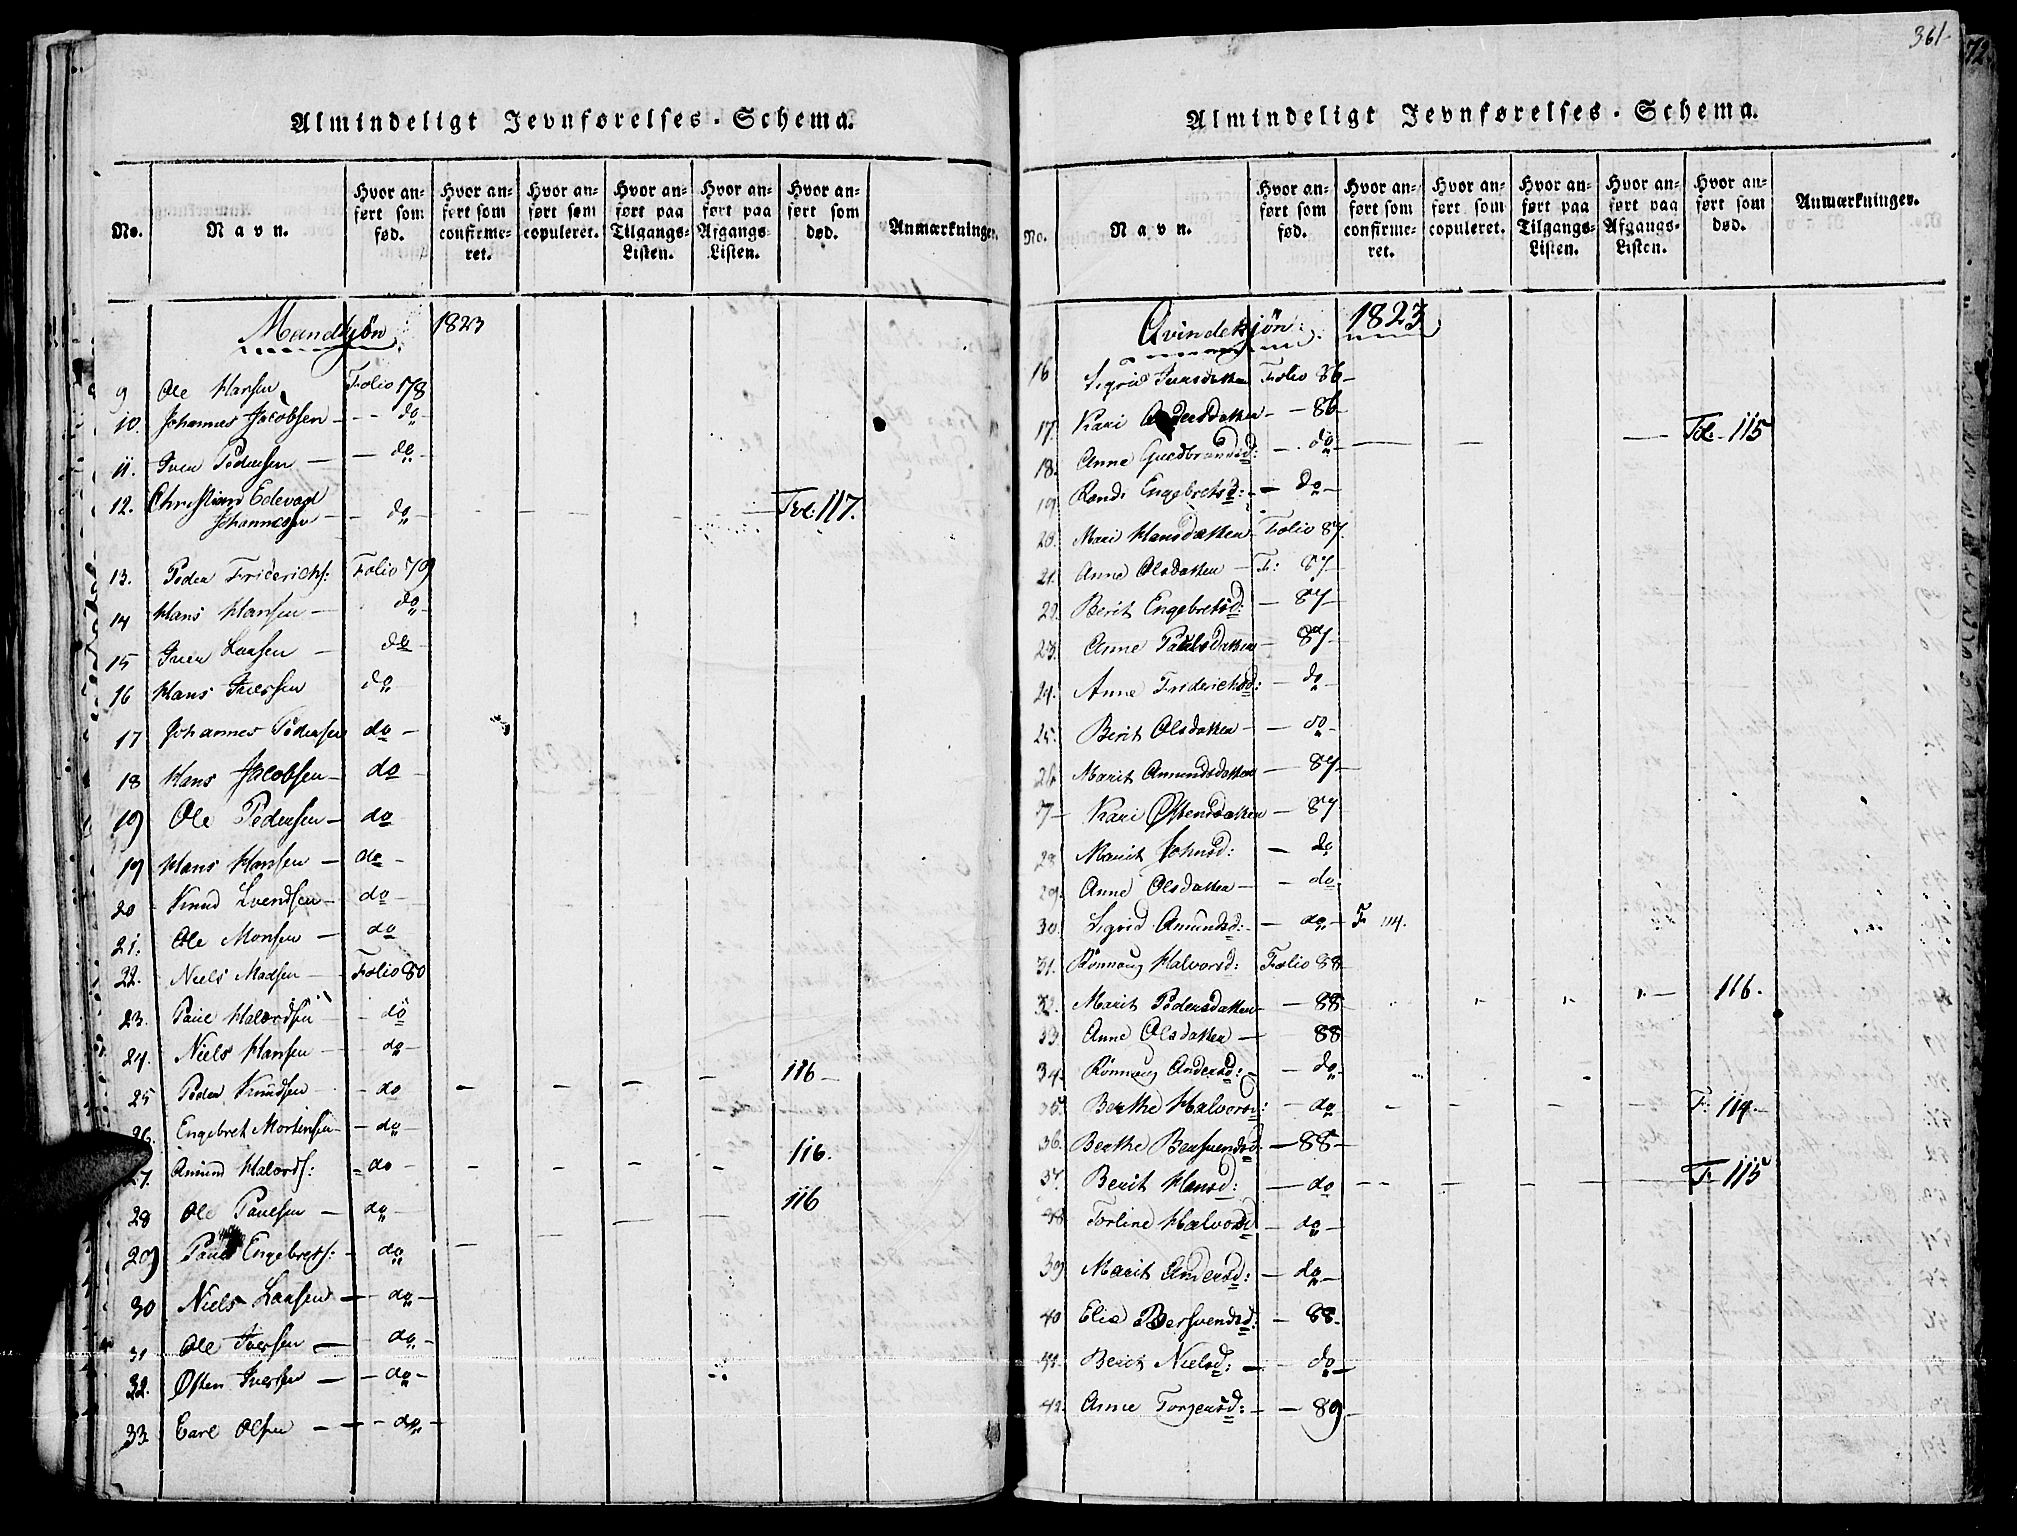 361
72
Almindeligt Jevnførelses-Schema.
No.
Navn.
Hvor anført som fød.
Hvor anført som confirmeret.
Hvor anført som copuleret.
Hvor anført paa Tilgangs-Listen.
Hvor anført paa Afgangs-Listen.
Hvor anført som død.
Anmærkninger.
Mandkjön 1823
9 Ole Hansen Folio 178
10. Johannes Jacobsen — do
11. Iver Pedersen — do
12. Christian Edevard
Johannesen — do Fol: 117.
13. Peder Friderichs: Folio 79
14 Hans Hansen — do
15 Iver Larsen — do
16 Hans Iversen do
17 Johannes Pedersen do —
18 Hans Jacobsen — do —
19 Ole Pedersen — do
19 Hans Hansen — do —
20 Knud Svendsen — do —
21. Ole Monsen — do
22. Niels Madsen — Folio 80
23. Paul Halvordsen — do
24. Niels Hansen — do —
25 Peder Knudsen — do — — — — 116 —
26. Engebret Mortensen — do —
27. Amund Halvords: — do — — — — 116.
28 Ole Paulsen — do — — — 116
29 Paul Engebrets: — do — —
30 Niels Larsen — do —
31 Ole Iversen — do —
32. Østen Iversen — do —
33. Carl Olsen — do —
Almindeligt Jevnførelses-Schema.
No.
Navn.
Hvor anført som fød.
Hvor anført som confirmeret.
Hvor anført som copuleret.
Hvor anført paa Tilgangs-Listen.
Hvor anført paa Afgangs-Listen.
Hvor anført som død.
Anmærkninger.
Qvindekjön: 1823
16 Sigrid Iversdatter Folio 86 —
17. Kari Andersdatter — 86 —
18. Anne Guldbrandsd: — do — — — Fol: 115
19. Randi Engebretsd: — do —
20. Mari Hansdatter Folio 87.
21. Anne Olsdatter — F: 87 —
22. Berit Engebretsd: — 87 —
23. Anne Paulsdatter — 87 —
24. Anne Friderichsd: — do —
25. Berit Olsdatter — do —
26 Marit Amundsdatter — 87 —
7 — Kari Østensdatter — 87
28 Marit Johnsd: — do
29. Anne Olsdatter — do
30. Sigrid Amundsd: — do — F 114.
31. Rönnaug Halvorsd: Folio 88 —
32. Marit Pedersdatter — 88 — 116.
33 Anne Olsdatter — 88
34. Rönnaug Andersd: — do —
35. Berthe Halvorsd: — do — — — — — F: 114 —
36. Berthe Bersvendsd: — 88 —
37. Berit Hansd: — do — — — — — F: 115
38 Torline Halvorsd — do —
39 Marit Andersd: — do —
40 Elie Bersvendsd: — 88.
41. Berit Nielsd: — do —
42. Anne Torgersd: — 89 —